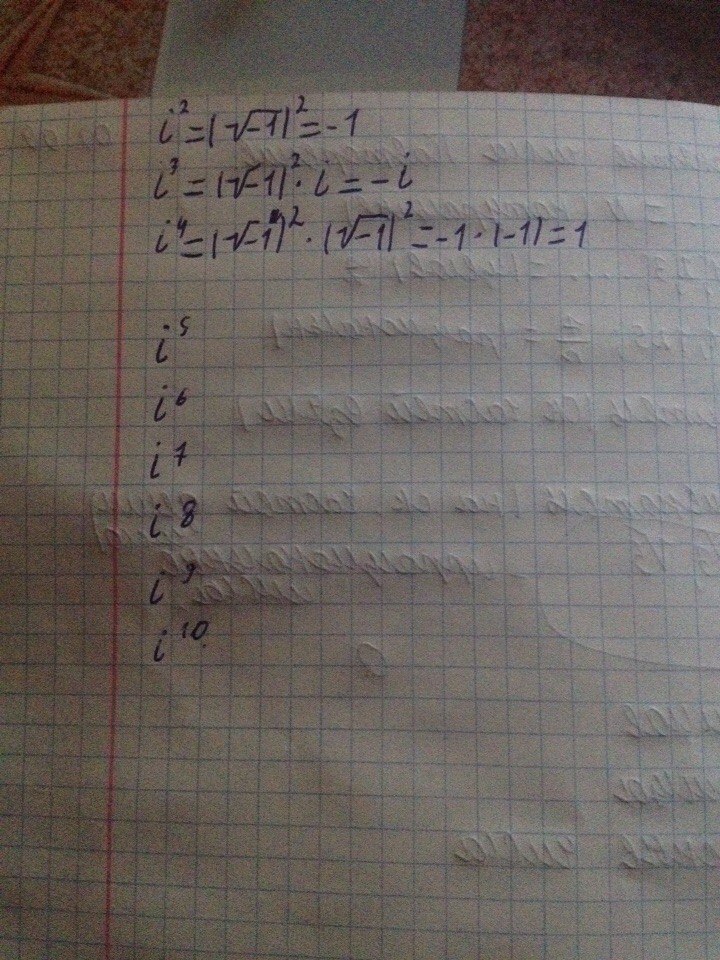 i² = (√-1)² = -1
i³ = (√-1)² · i = -i
i⁴ = (√-1)² · (√-1)² = -1 · (-1) = 1
i⁵
i⁶
i⁷
i⁸
i⁹
i¹⁰